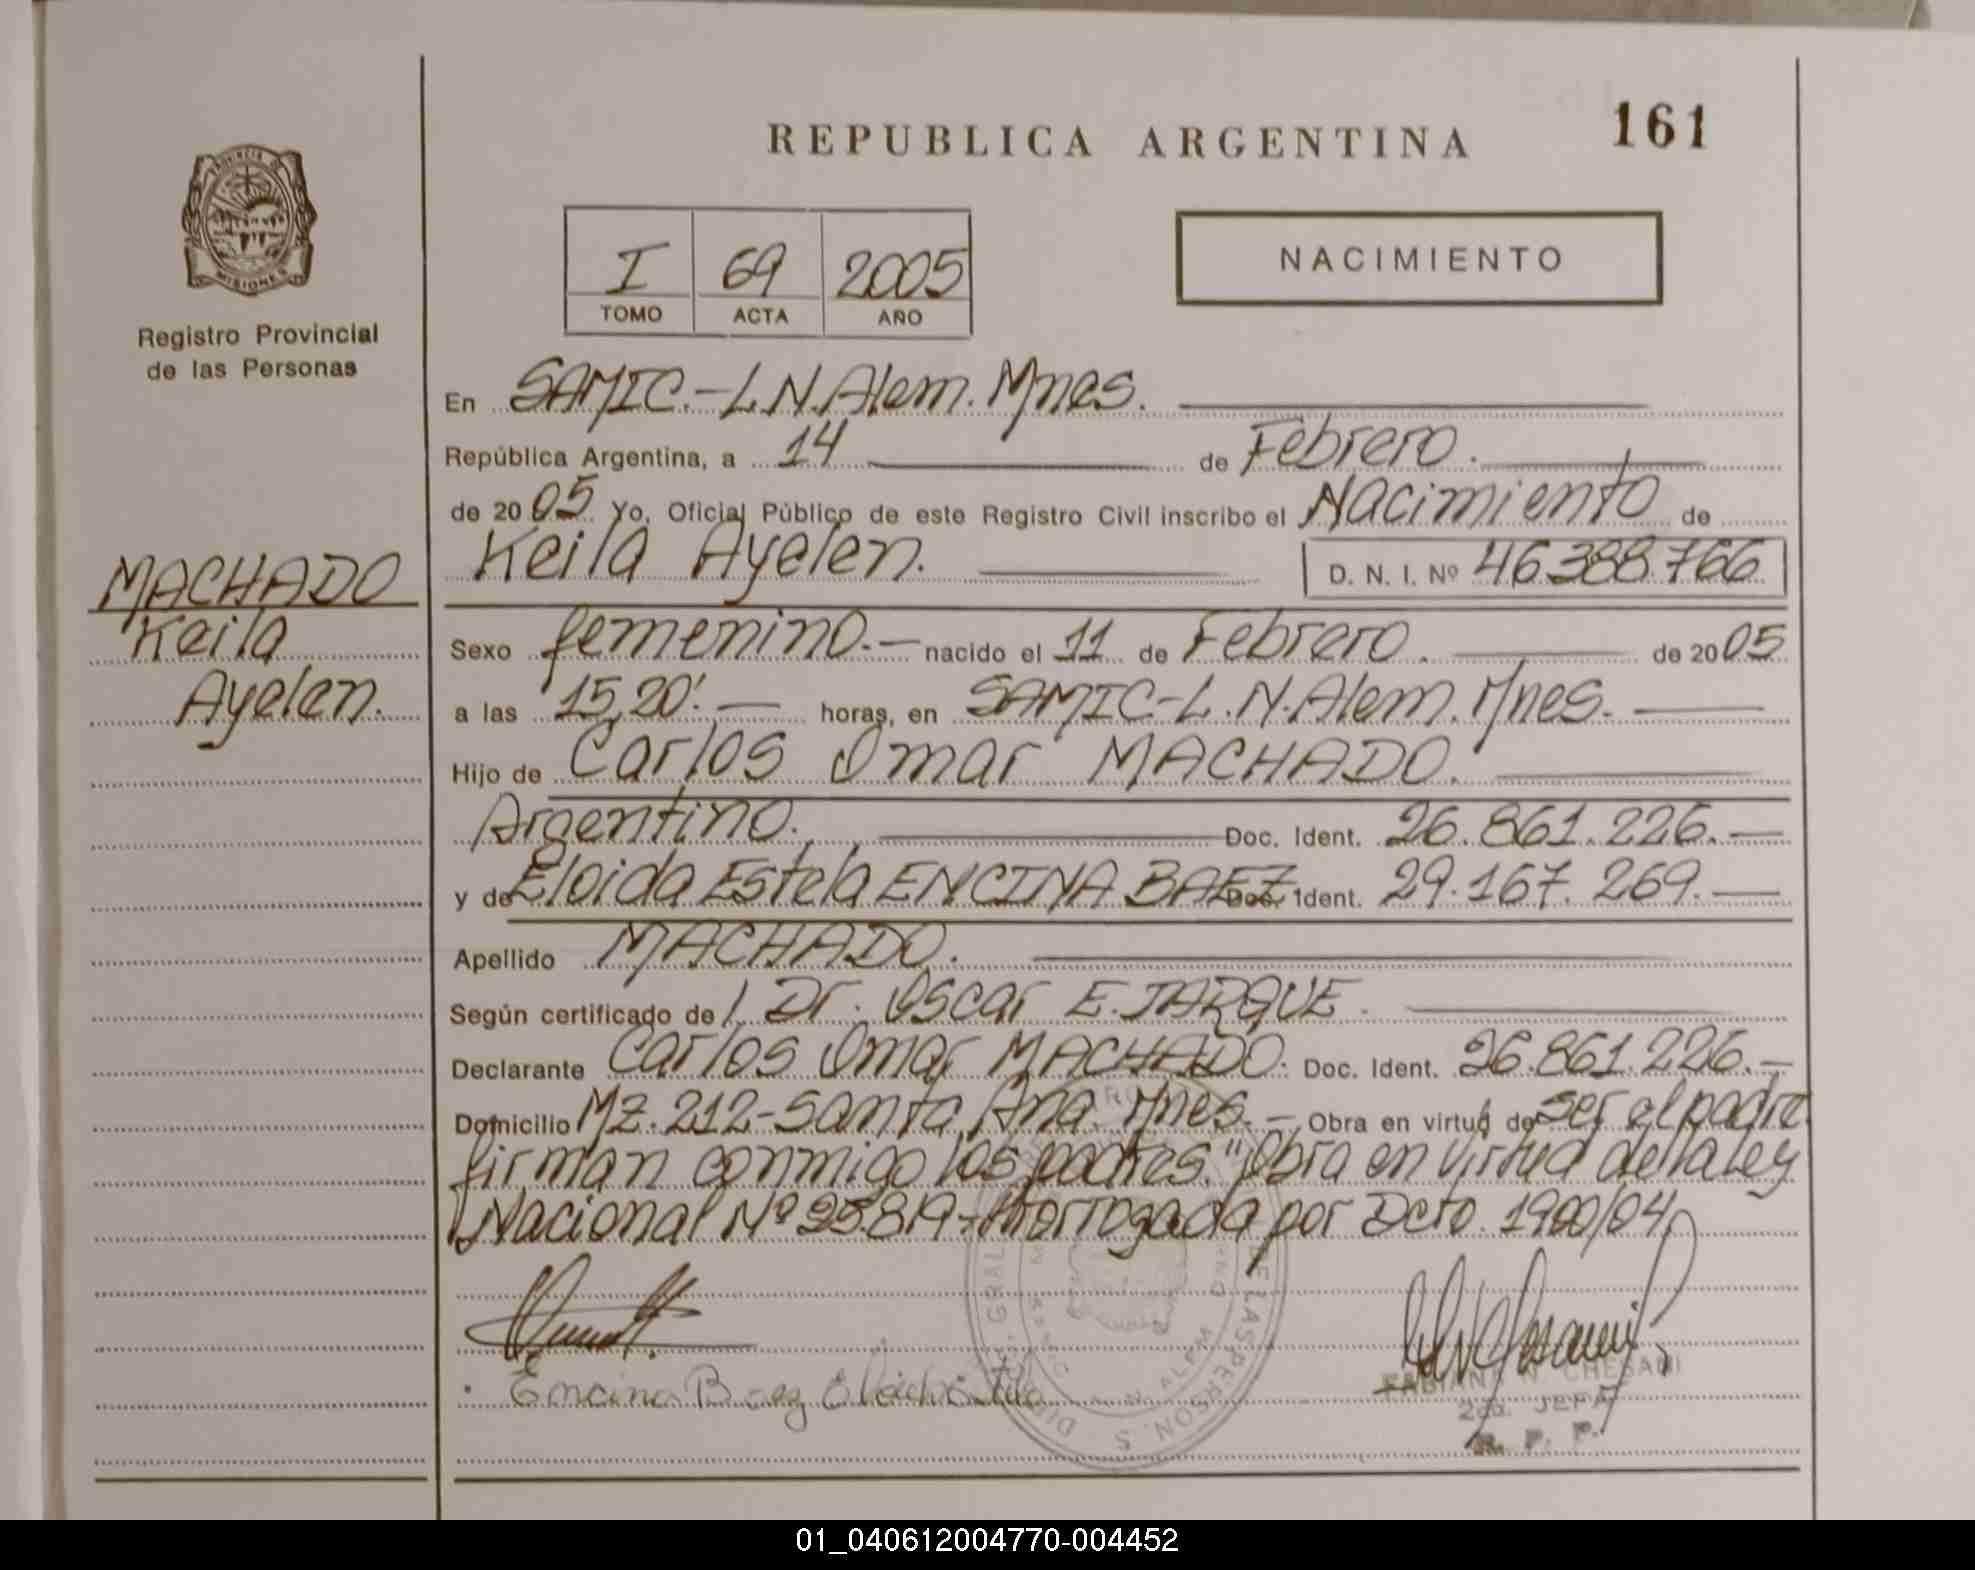 REPUBLICA ARGENTINA
161
PROVINCIA DE MISIONES
Registro Provincial
de las Personas
I 69 2005
TOMO ACTA AÑO
NACIMIENTO
En SAMIC.-L.N.Alem. Mnes.
República Argentina, a 14 de Febrero.
de 2005 Yo, Oficial Público de este Registro Civil inscribo el Nacimiento de
Keila Ayelen. D. N. I. Nº 46.388.766
MACHADO
Keila
Ayelen.
Sexo femenino.- nacido el 11 de Febrero. de 2005
a las 15,20'.- horas, en SAMIC-L.N.Alem. Mnes.
Hijo de Carlos Omar MACHADO.
Argentino. Doc. Ident. 26.861.226.-
y de Eloida Estela ENCINA BAEZ Doc. Ident. 29.167.269.-
Apellido MACHADO.
Según certificado de Dr. Oscar E. JARQUE.
Declarante Carlos Omar MACHADO. Doc. Ident. 26.861.226.-
Domicilio Mz. 212-Santa Ana. Mnes.- Obra en virtud de ser el padre
firman conmigo los padres. "Obra en virtud de la ley
Nacional Nº 25.819- Prorrogada por Dcto. 1900/04
Encina Baez Eloida
FABIANA N. CHESANI
2da. JEFA
R. P. P.
01_040612004770-004452